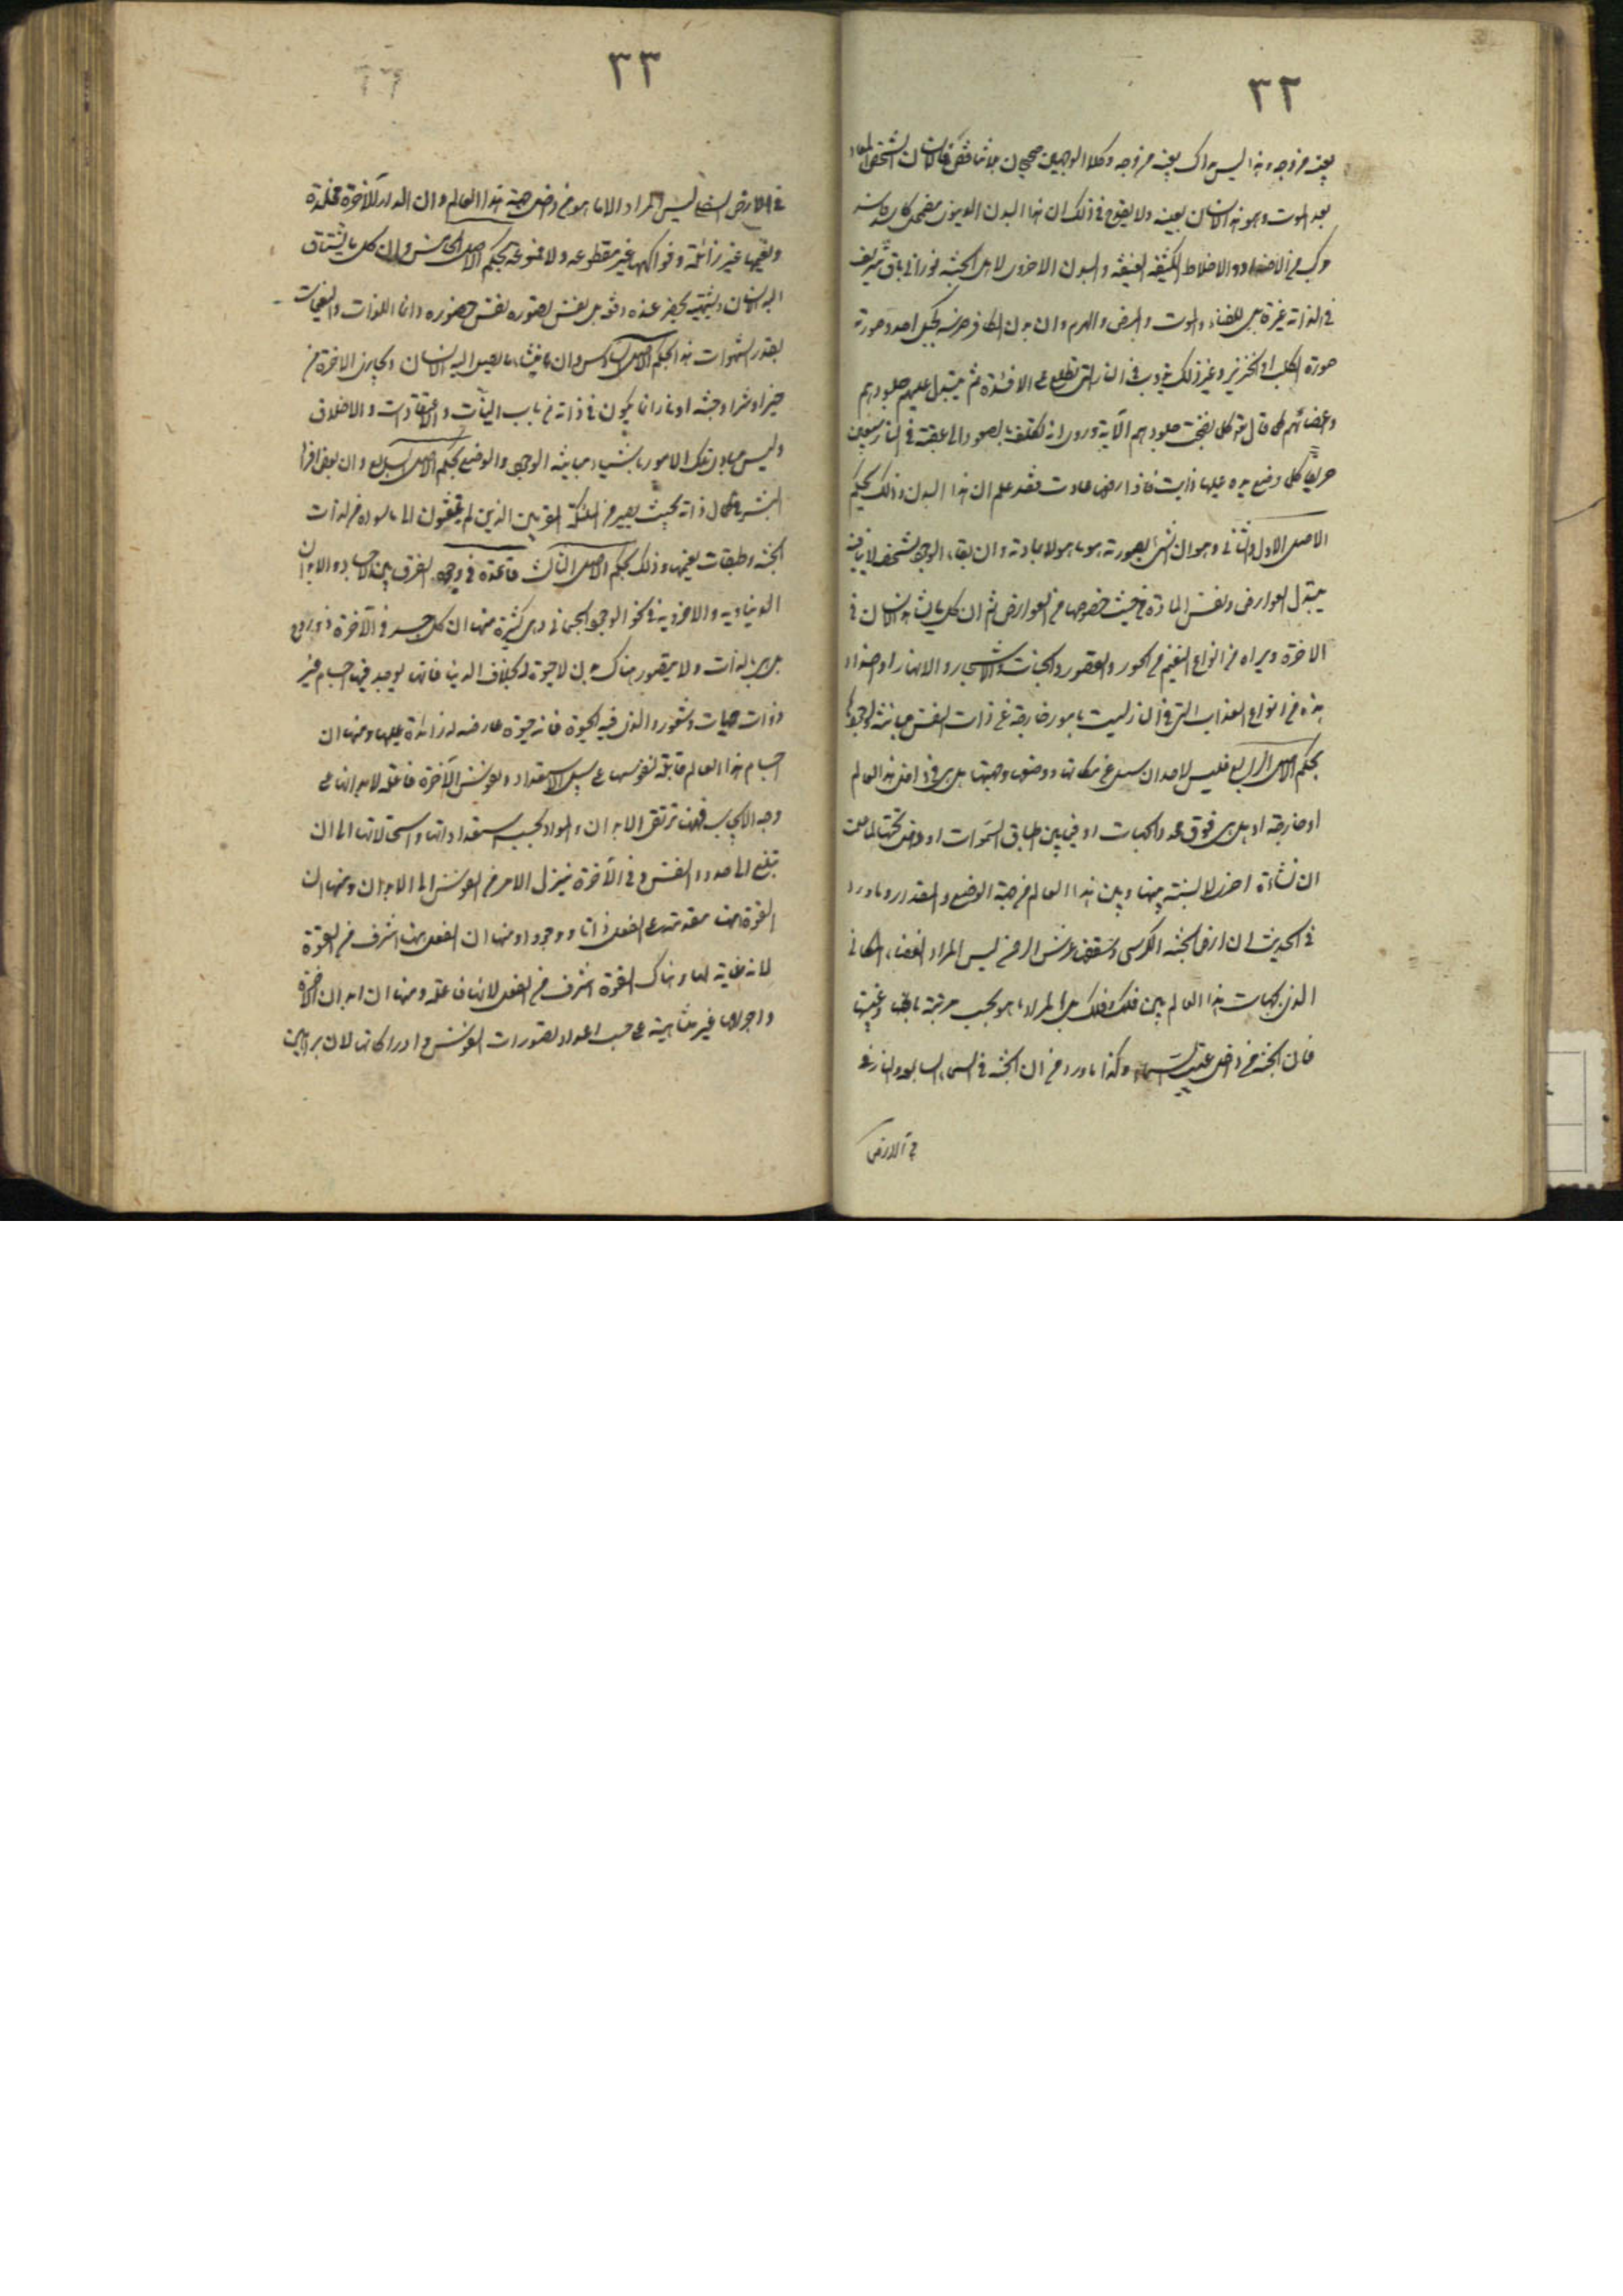 ٣٢
بعينه من وجه وهذا ليس ذاك بعينه من وجه وكلا الوجهين صحيحان بلا تناقض فالانسان الشخصى المعاد
بعد الموت وهو هذا الانسان بعينه ولا يقدح فى ذلك ان هذا البدن الدنيوى مضمحل كائن فاسد
مركب من الاضداد والاخلاط الكثيفة العفنة والبدن الاخروى لاهل الجنة نورانى باق شريف
فى الذات غير قابل للفناء والموت والمرض والهرم وان بدن الكافر ضرسه كجبل احد وصورته
صورة الكلب او الخنزير وغير ذلك يذوب فى النار التى تطلع على الافئدة ثم يتبدل عليهم جلودهم
واعضائهم كما قال تعالى كلما نضجت جلودهم الآية وورد انه تكلف بالصعود الى عقبة فى النار سبعين
خريفا كلما وضع يده عليها ذابت فاذا رفعها عادت فقد علم ان هذا البدن وذلك بحكم
الاصل الاول والثانى وهو ان الشئ بصورته هو ما هو لا بمادته وان بقاء الوجود الشخصى لا ينافيه
تبدل العوارض ونفس المادة من حيث خصوصها من العوارض ثم ان كل ما يشاهده الانسان فى
الاخرة ويراه من انواع النعيم من الحور والقصور والجنات والاشجار والانهار او اضداد
هذه من انواع العذاب التى فى النار ليست بامور خارجة عن ذات النفس مباينة لوجودها
بحكم الاصل الرابع فليس لاحد ان يسئل عن مكانها ووضعها وجهتها هل هى فى داخل هذا العالم
او خارجه او هل هى فوق محدد الجهات او فيما بين اطباق السموات او داخل تحتها لما علمت
ان نشأة اخرى لا نسبة بينها وبين هذا العالم من جهة الوضع والمقدار وما ورد
فى الحديث ان ارض الجنة الكرسى وسقفها عرش الرحمن ليس المراد الفضاء المكانى
الذى لجهات هذا العالم بين فلك وفلك بل المراد ما هو بحسب مرتبة باطنها وغيبها
فان الجنة من داخل غيب السماء وكذا ما ورد من ان الجنة فى السماء السابعة والنار
فى الارض
٣٣
فى الارض السفلى ليس المراد الا ما هو من داخل حجب هذا العالم وان الدار الآخرة مخلدة
ونعيمها غير زائلة وفواكهها غير مقطوعة ولا ممنوعة بحكم الاصل الخامس وان كل ما يشتاق
اليه الانسان ويشتهيه يحضر عنده دفعة بل نفس تصوره نفس حضوره وانما اللذات والنعيمات
بقدر الشهوات هذا بحكم الاصل السادس وان ما يشاء ما يصل اليه الانسان ويجازى الاخرة من
خير او شر او جنة او نار انما يكون فى ذاته من باب النيات والاعتقادات والاخلاق
وليس مبادى تلك الامور باشياء مباينة الوجود والوضع بحكم الاصل السابع وان بعض افراد
البشر فى كمال ذاته بحيث يصير من الملائكة المقربين الذين لم يلتفتون الى ما سواه من لذات
الجنة وطبقات نعيمها وذلك بحكم الاصل الثالث قاعدة فى وجوه الفرق بين الاجساد والابدان
الدنياوية والاخروية فى نحو الوجود الجسمانى وهى كثيرة منها ان كل جسد فى الآخرة ذو روح
بل حى بالذات ولا يتصور هناك بدن لا حيوة له بخلاف الدنيا فانها يوجد فيها اجسام غير
ذوات حيات وشعور والذى فيه الحيوة فانه حيوة عارضة له زائدة عليها ومنها ان
اجسام هذا العالم قابلة لنفوسها على سبيل الاستعداد ونفوس الآخرة فاعلة لابدانها على
وجه الايجاب فههنا ترتقى الابدان والمواد بحسب استعداداتها واستحالاتها الى ان
تبلغ الى حدود النفس وفى الآخرة ينزل الامر من النفوس الى الابدان ومنها ان
القوة ههنا مقدمة على الفعل ذاتا ووجودا ومنها ان الفعل ههنا اشرف من القوة
لانه غاية لها وهناك القوة اشرف من الفعل لانها فاعلة ومنها ان ابدان الآخرة
واجرامها غير متناهية على حسب اعداد تصورات النفوس وادراكاتها لان براهين